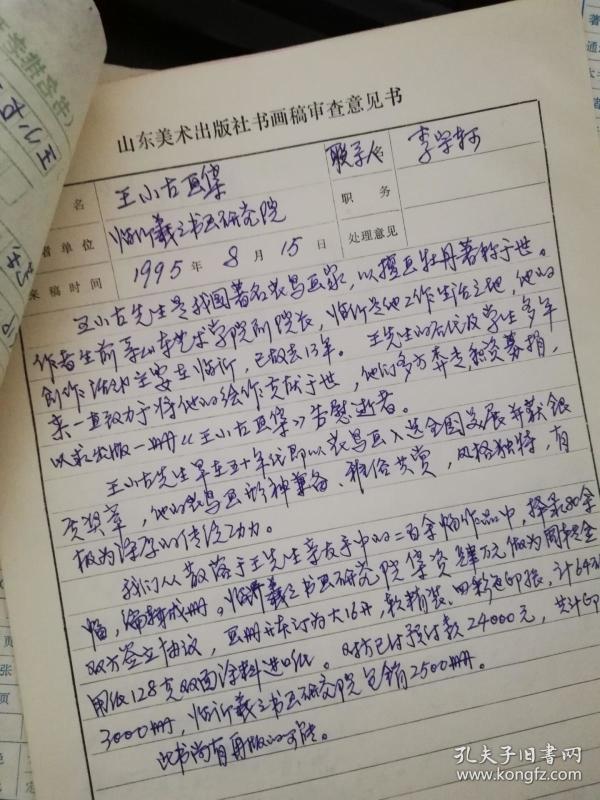 山东美术出版社书画稿审查意见书
名 王小古画集 联系人 李学明
者单位 临沂羲之书画研究院 职务
来稿时间 1995年8月15日 处理意见
王小古先生是我国著名花鸟画家，以擅画牡丹著称于世。
作者生前系山东艺术学院副院长，临沂是他工作生活之地，他的
创作活动主要在临沂，已故去13年。王先生的后代及学生多年
来一直致力于将他的绘作贡献于世，他们多方奔走，积资募捐，
以求出版一册《王小古画集》告慰逝者。
王小古先生早在五十年代即以花鸟画入选全国美展并获银
质奖章，他的花鸟画形神兼备、雅俗共赏，风格独特，有
极为深厚的传统功力。
我们从散落于王先生亲友手中的二百余幅作品中，择录80余
幅，编辑成册。临沂羲之书画研究院集资肆万元做为周转金
双方签立协议，画册开本订为大16开，软精装、四彩色印张，计64
用纸128克双面涂料进口纸。对方已付预付款24000元，共计印
3000册，临沂羲之书画研究院包销2500册。
此书尚有再版的可能。
孔夫子旧书网
www.kongfz.com